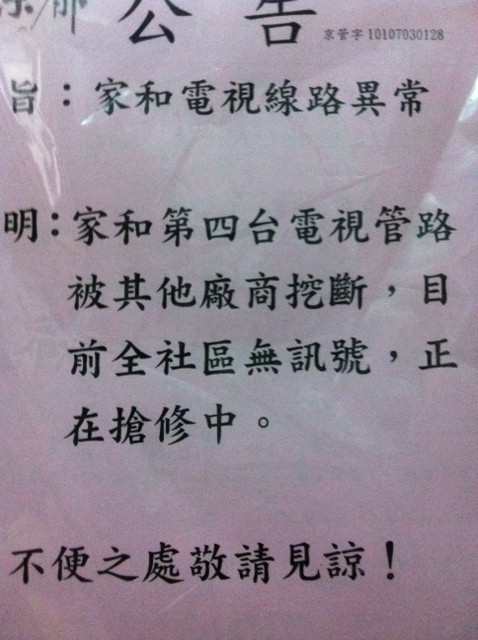 公告
京管字 10107030128
旨：家和電視線路異常
明：家和第四台電視管路
被其他廠商挖斷，目
前全社區無訊號，正
在搶修中。
不便之處敬請見諒！